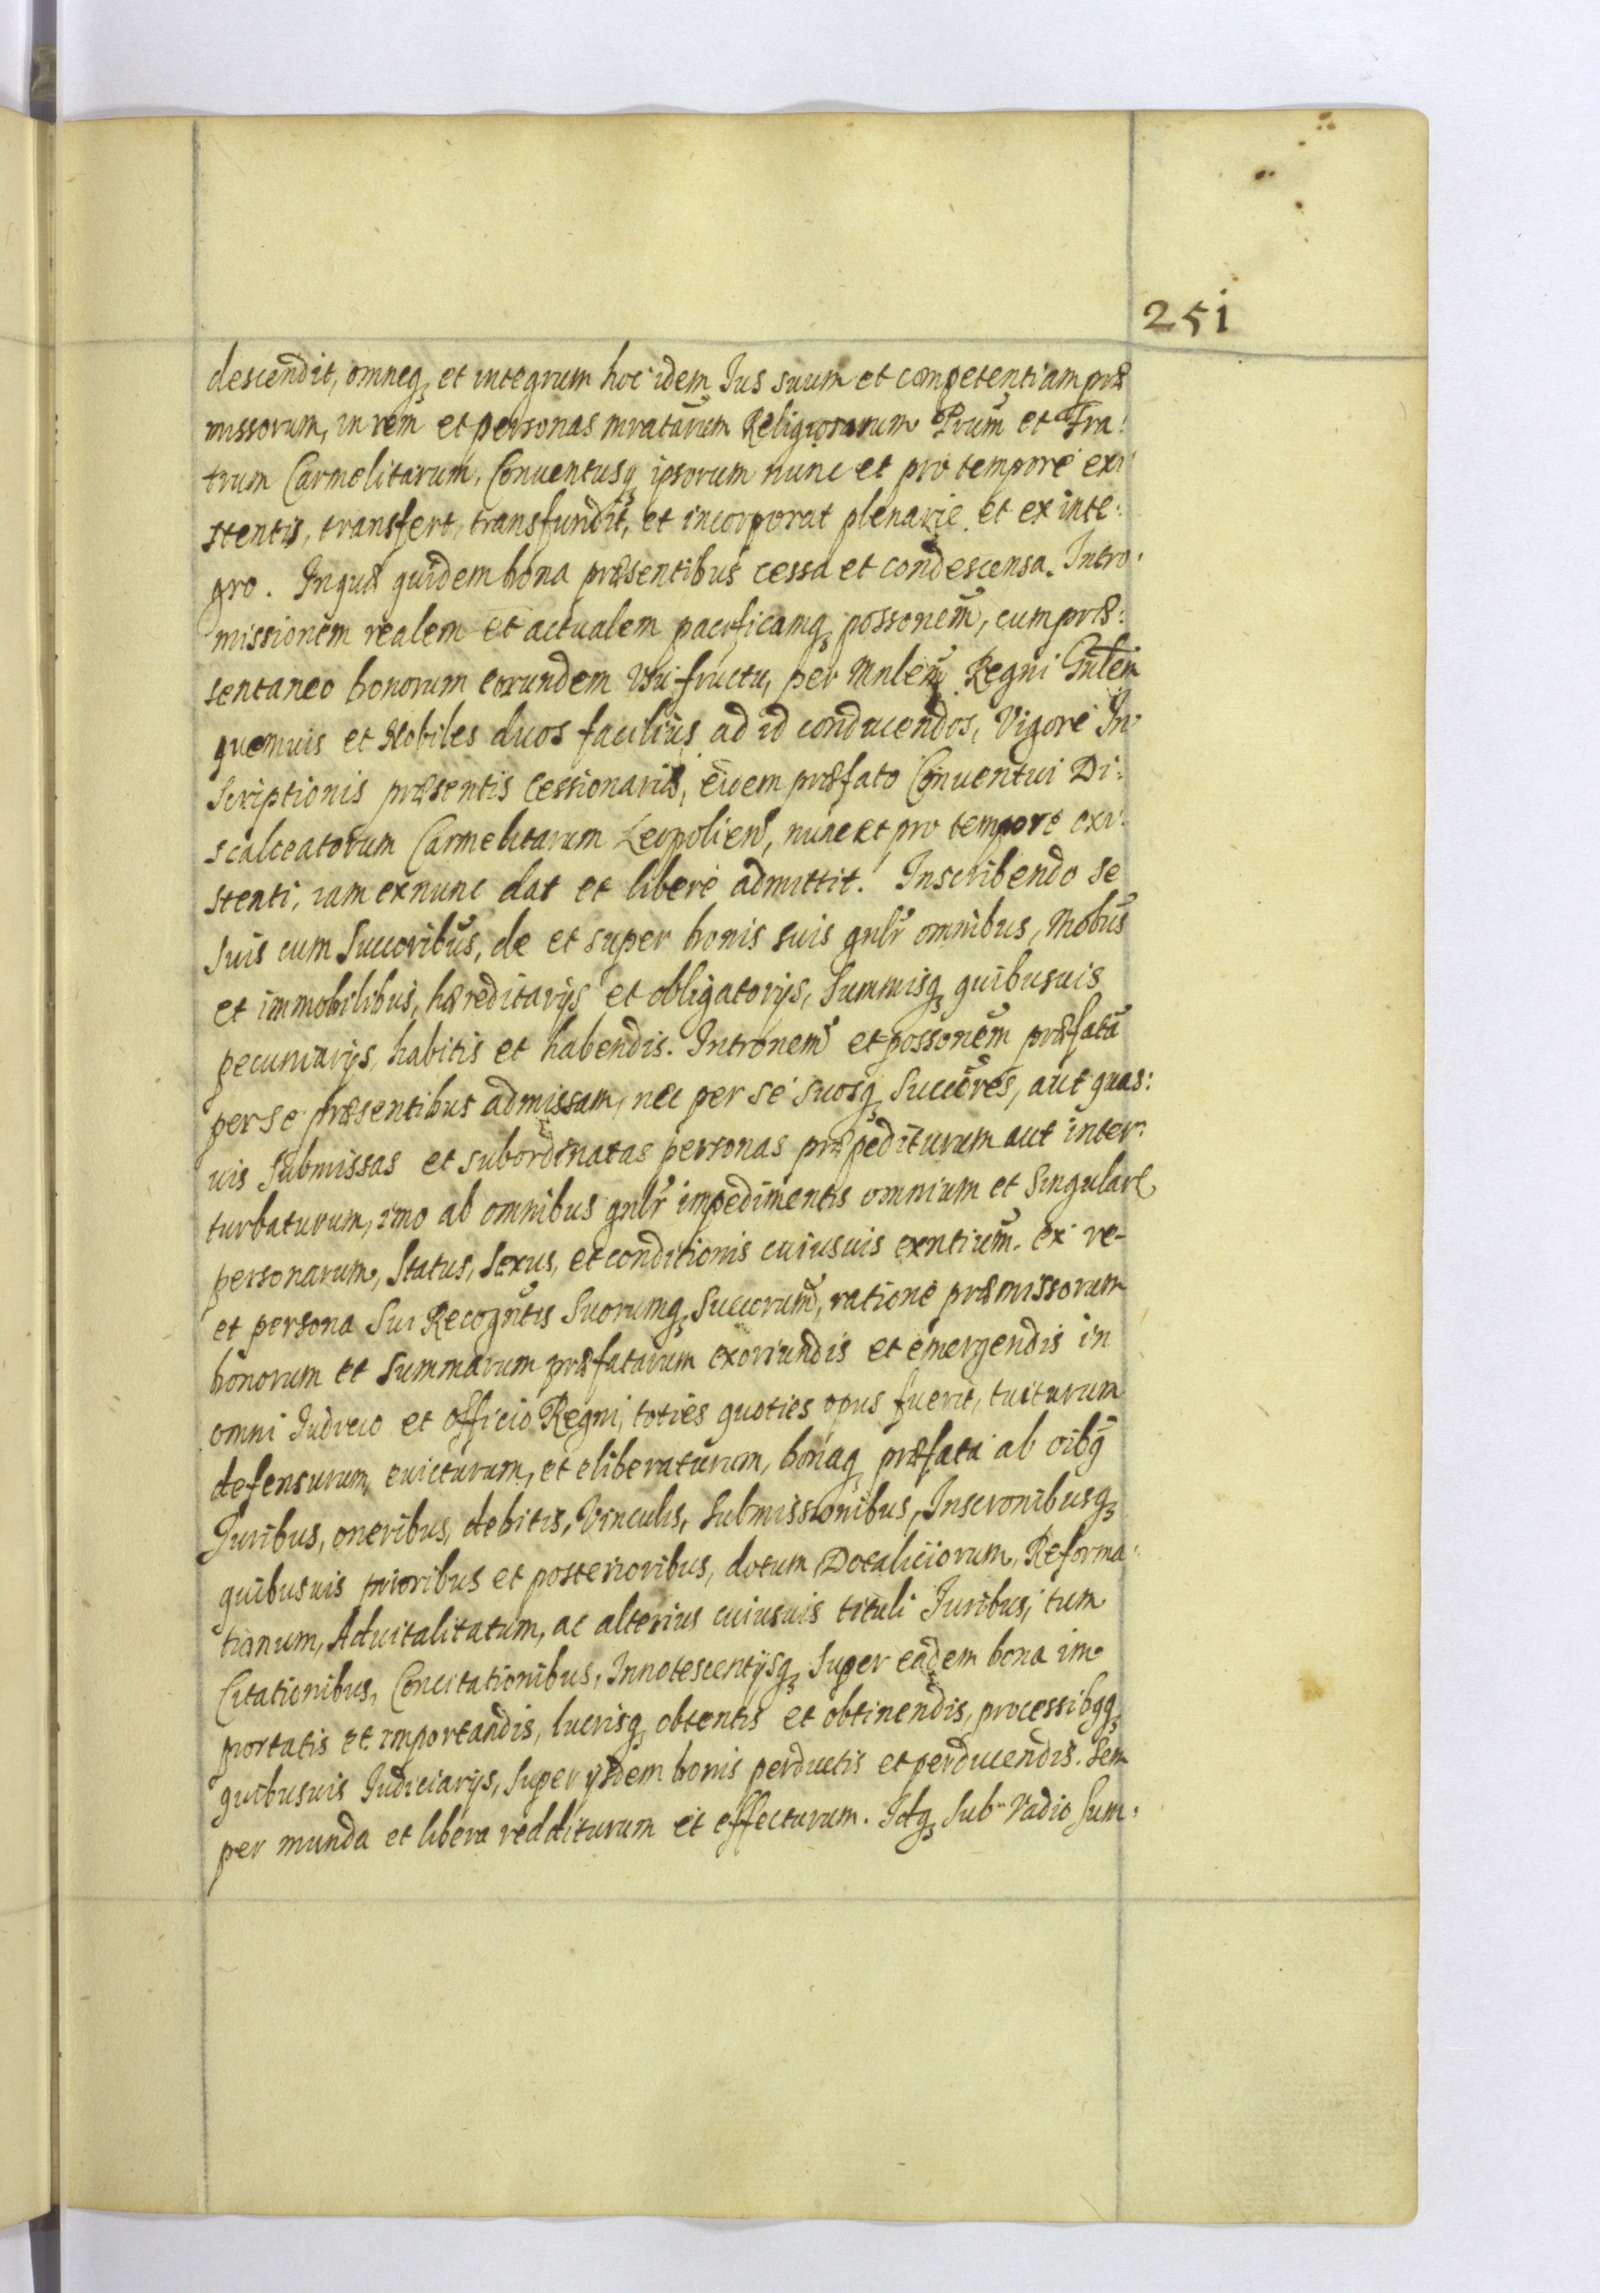 251
descendit, omneq́ et integrum hoc idem Ius suum et competentiam præ
missorum, in rem et personas mratarum Religiosorum Prum et Fra:
trum Carmelitarum, Conventusq́ ipsorum nunc et pro tempore exi
stentis, transfert, transfundit, et incorporat plenarie et ex inte:
gro. In quæ quidem bona præsentibus cessa et condescensa. Intro:
missionem realem et actualem pacificamq́ possonem, cum præ:
sentaneo bonorum eorundem Usufructu, per Mnlem Regni Gnlem
quemuis et Nobiles duos facilius ad id conducendos, Vigore In
scriptionis præsentis Cessionariæ, eidem præfato Conventui Di:
scalceatorum Carmelitarum Leopolien, nunc et pro tempore exi:
stenti, iam exnunc dat et libere admittit. Inscribendo se
suis cum Succoribus, de et super bonis suis gnlr omnibus, Mobus
et immobilibus, hæreditarijs et obligatorijs, Summisq́ quibusuis
pecuniarijs, habitis et habendis. Intronem et possonem præfata
per se præsentibus admissam, nec per se suosq́ Succores, aut quas:
uis submissas et subordinatas personas præpediturum aut inter:
turbaturum, imo ab omnibus gnlr impedimentis omnium et singulare
personarum, Status, Sexus, et conditionis cuiusuis exntium. ex re
et persona Sui Recogntis Suorumq́ Succorum, ratione præmissorum
bonorum et Summarum præfatarum exoriundis et emergendis in
omni Iudicio et Officio Regni, toties quoties opus fuerit, tuiturum
defensurum, evicturum, et eliberaturum, bonaq́ præfata ab oibq́
Iuribus, oneribus, debitis, Vinculis, Submissionibus, Inscronibusq́
quibusuis prioribus et posterioribus, dotum Dotaliciorum, Reforma:
tionum, Aduitalitatum, ac alterius cuiusuis tituli Iuribus, tum
Citationibus, Concitationibus, Innotescentijsq́ Super eadem bona im
portatis et importandis, lucrisq́ obtentis et obtinendis, processibqq́
quibusuis Iudiciarijs, super ijsdem bonis perductis et perducendis. Sem
per munda et libera redditurum et effecturum. Idq́ Sub Vadio Sum: